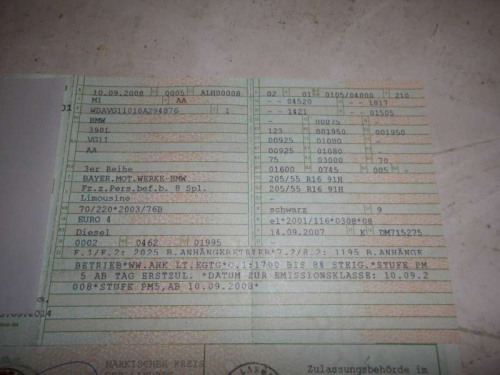 10.09.2008 0005 ALH00008 02 01 0105/04000 210
M1 AA - - 04520 - - 1817
WBAVG11010A294076 1 - - 1421 - - 01505
BMW - 00075 -
390L 123 001950 001950
VG11 00925 01080 -
AA 00925 01080 -
75 03000 70
3er Reihe 01600 0745 005 -
BAYER.MOT.WERKE-BMW 205/55 R16 91H
Fz.z.Pers.bef.b. 8 Spl. 205/55 R16 91H
Limousine - -
70/220*2003/76B schwarz 9
EURO 4 e1*2001/116*0308*08
Diesel 14.09.2007 K DM715275
0002 0462 01995
F.1/F.2: 2025 B.ANHÄNGEBETRIEB*7.2/8.2: 1195 B.ANHÄNGE
BETRIEB*WW.AHK LT.EGTG*O.1:1700 BIS 8% STEIG.*STUFE PM
5 AB TAG ERSTZUL. *DATUM ZUR EMISSIONSKLASSE: 10.09.2
008*STUFE PM5,AB 10.09.2008*
MÄRKISCHER KREIS
Zulassungsbehörde im